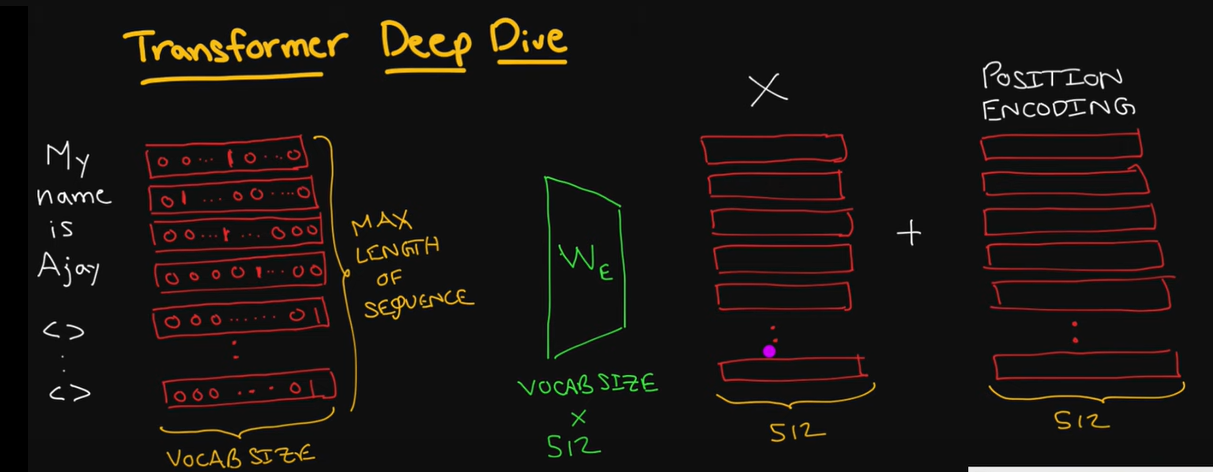 Transformer Deep Dive
My
name
is
Ajay
<>
<>
0 0 ... 1 0 ... 0
0 1 ... 0 0 ... 0
0 0 ... 1 ... 0 0 0
0 0 0 0 1 ... 0 0
0 0 0 ...... 0 1
0 0 0 ... 0 1
VOCAB SIZE
MAX
LENGTH
OF
SEQUENCE
WE
VOCAB SIZE
X
512
X
512
+
POSITION
ENCODING
512